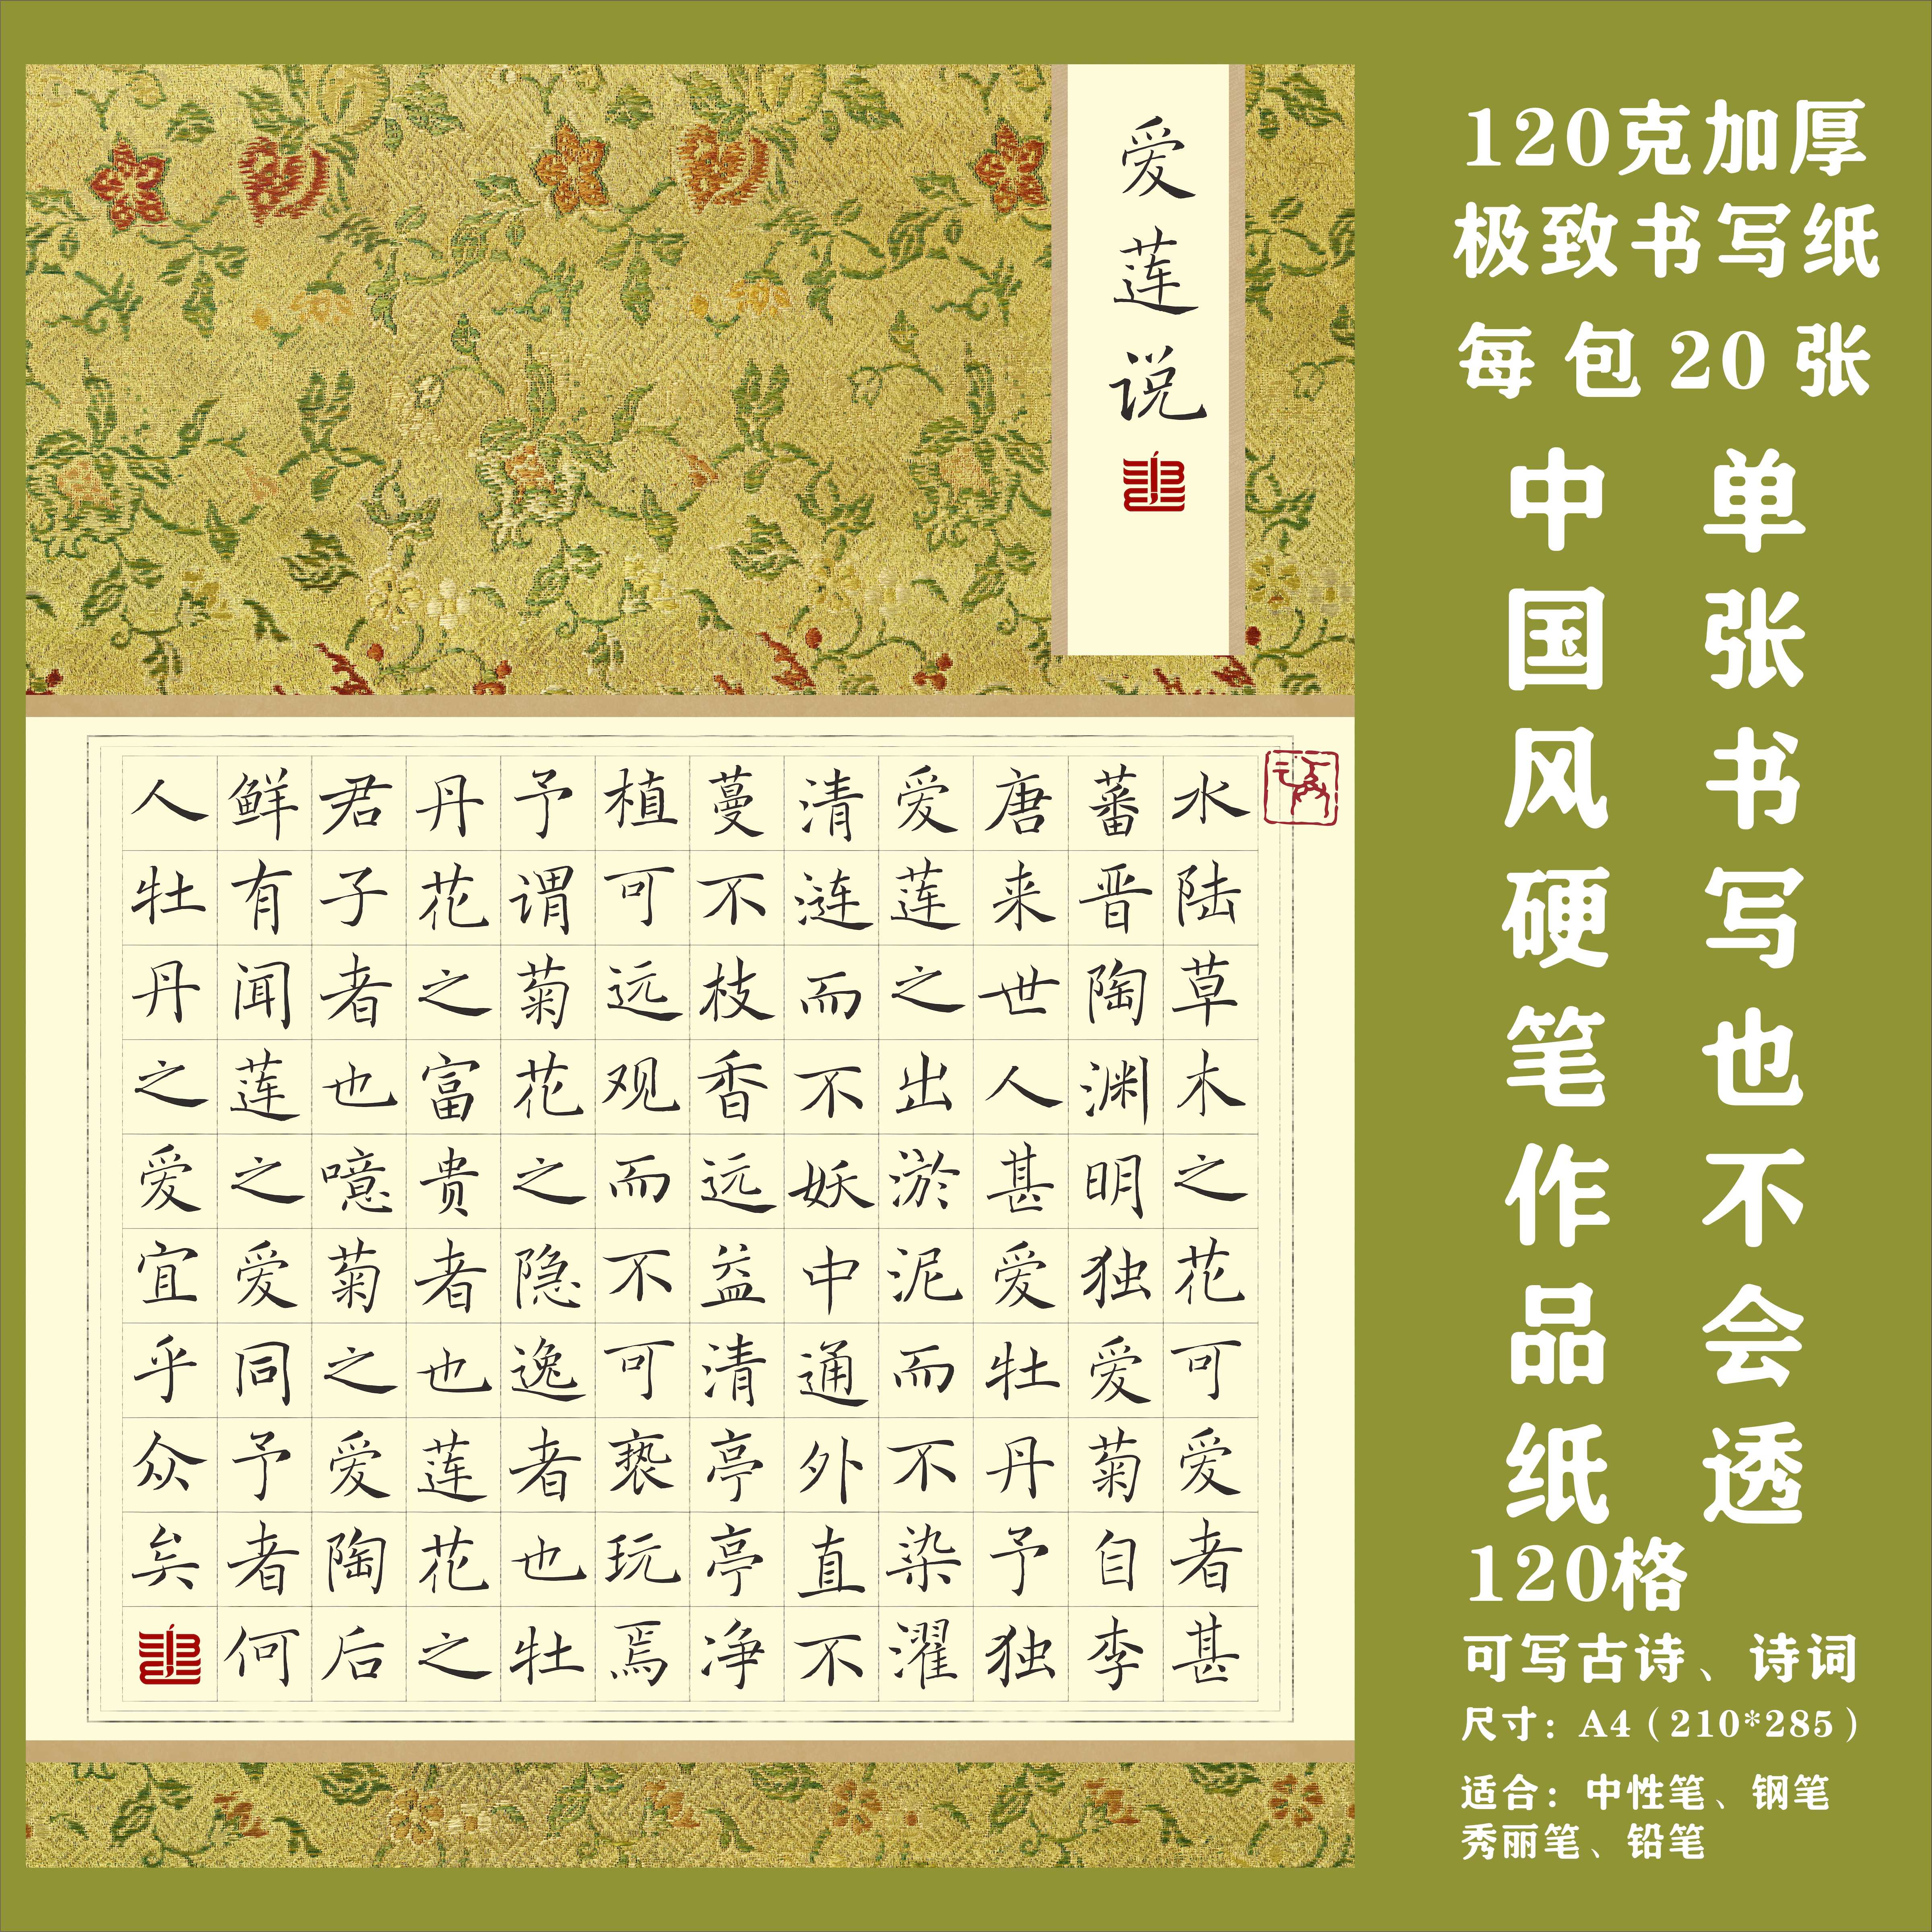 爱莲说
水陆草木之花可爱者甚
蕃晋陶渊明独爱菊自李
唐来世人甚爱牡丹予独
爱莲之出淤泥而不染濯
清涟而不妖中通外直不
蔓不枝香远益清亭亭净
植可远观而不可亵玩焉
予谓菊花之隐逸者也牡
丹花之富贵者也莲花之
君子者也噫菊之爱陶后
鲜有闻莲之爱同予者何
人牡丹之爱宜乎众矣
120克加厚
极致书写纸
每包20张
单张书写也不会透
中国风硬笔作品纸
120格
可写古诗、诗词
尺寸：A4（210*285）
适合：中性笔、钢笔
秀丽笔、铅笔